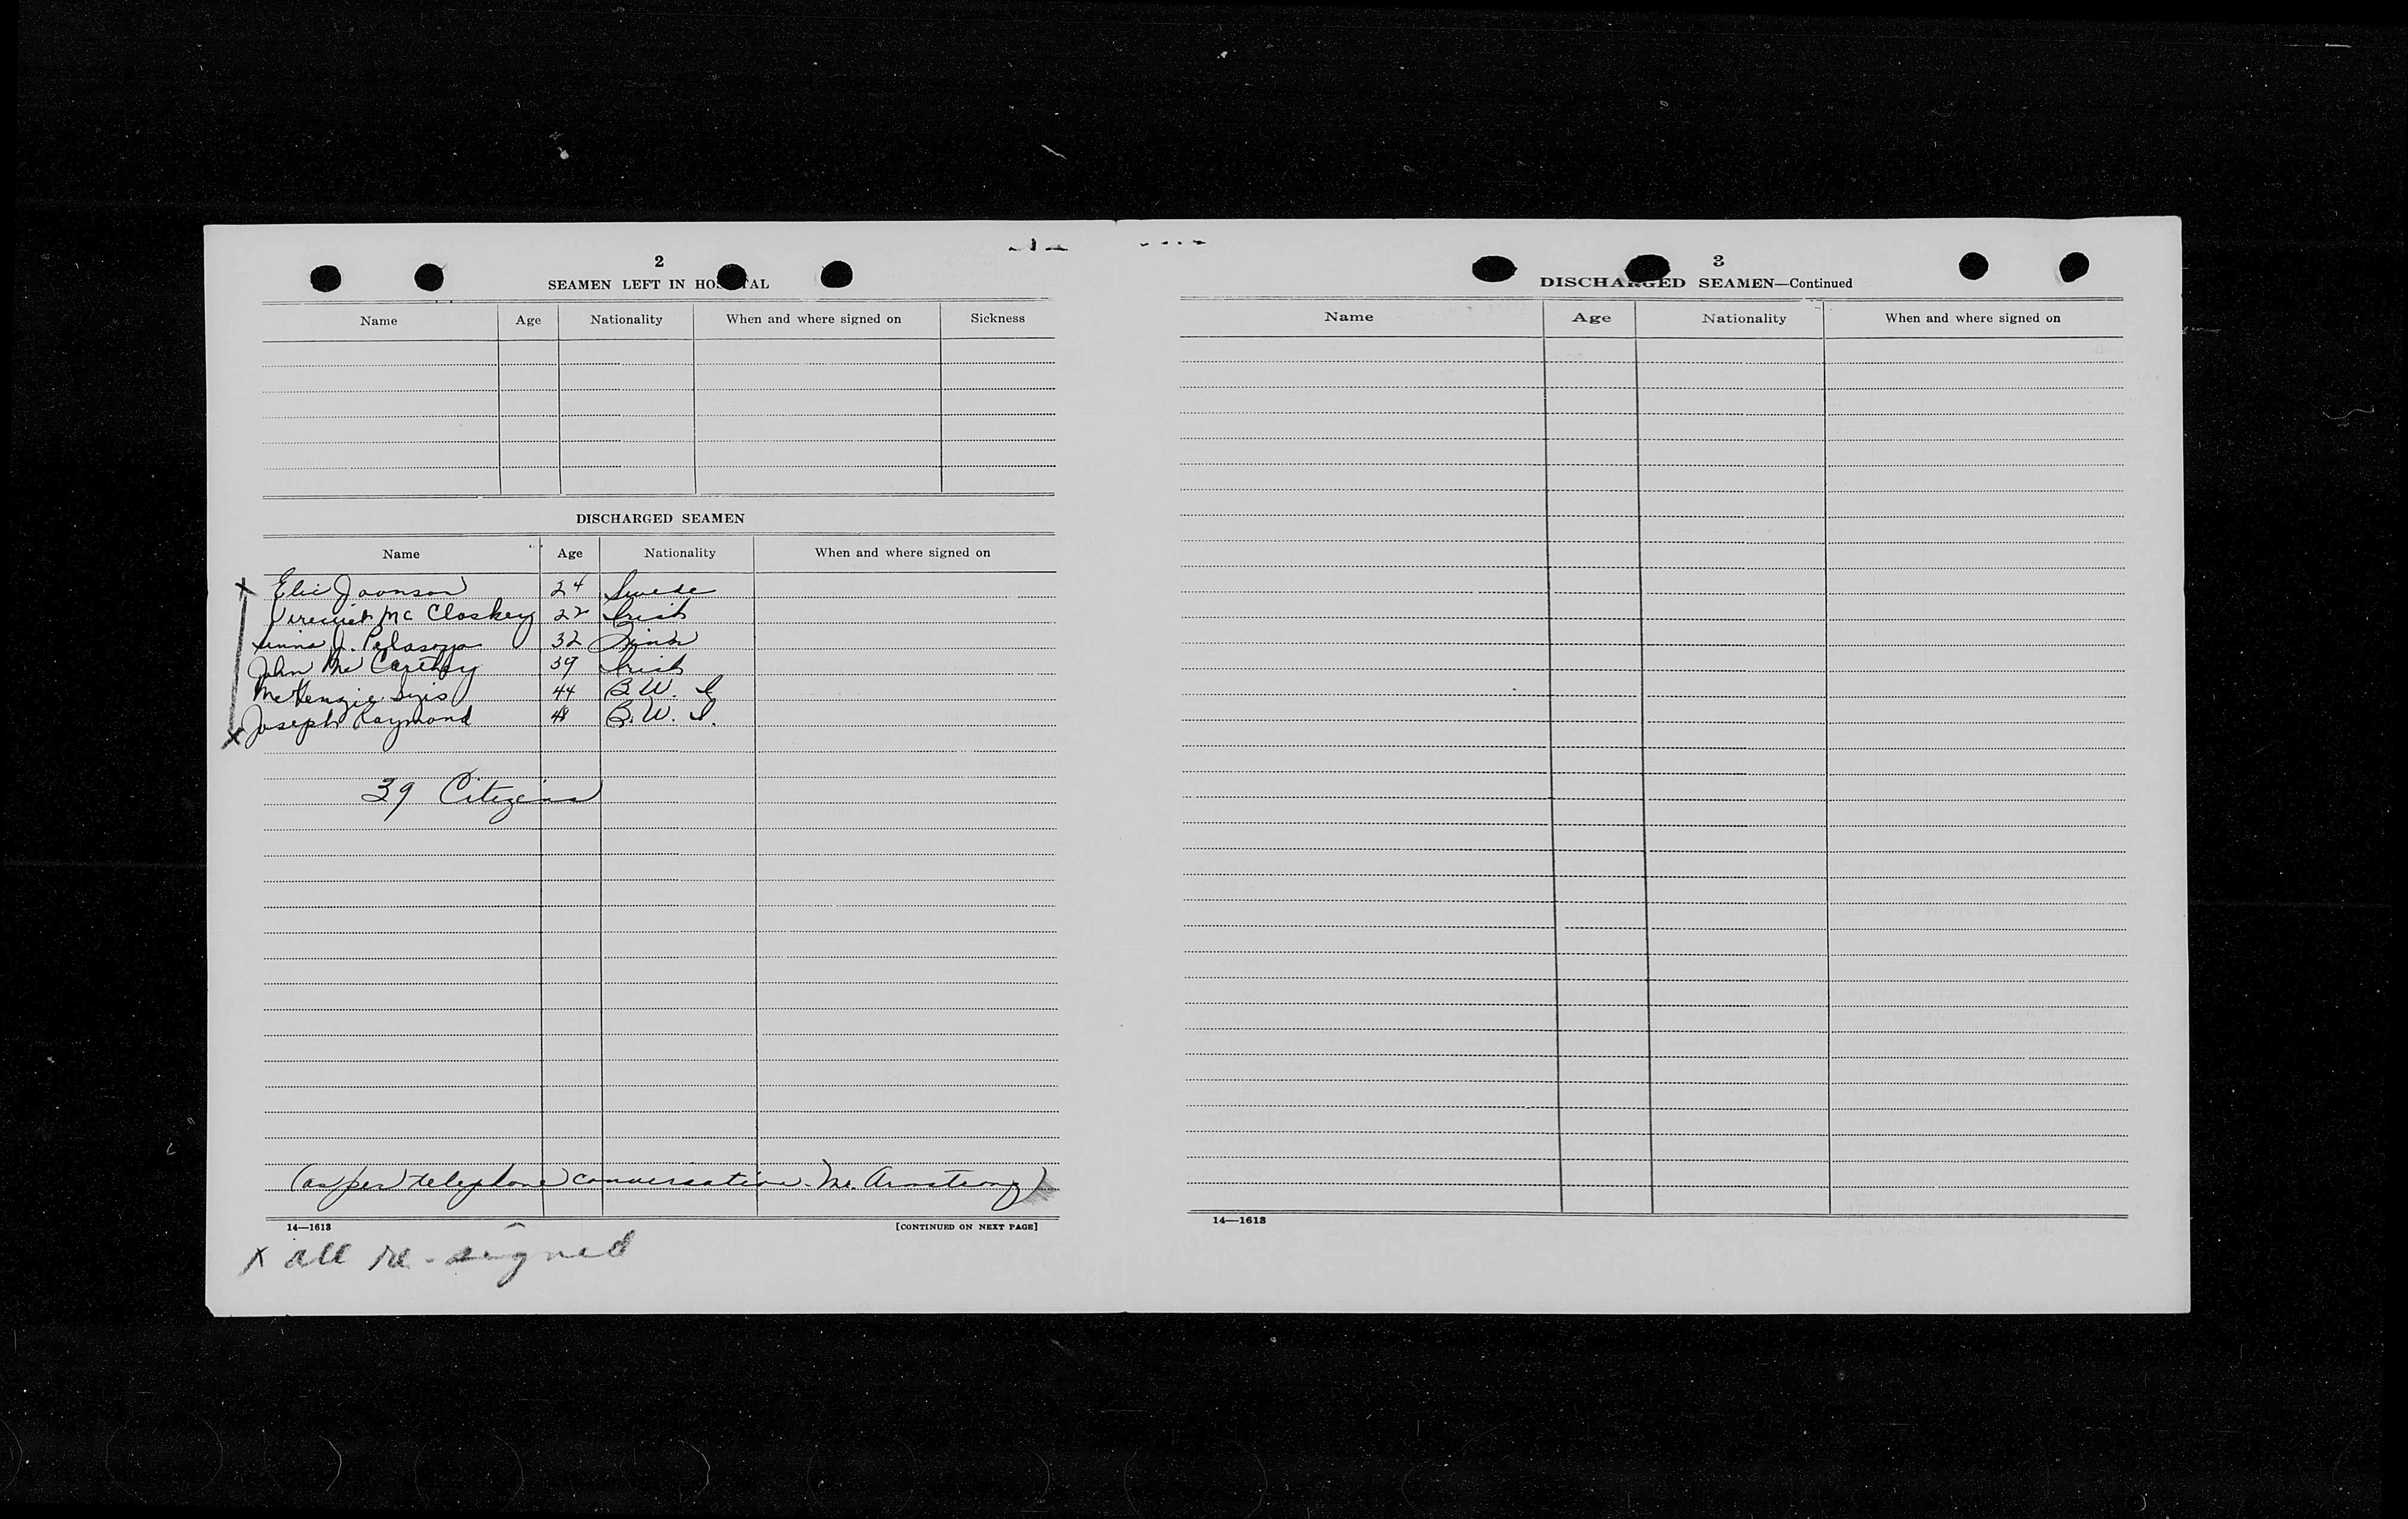 2
SEAMEN LEFT IN HOSPITAL
Name Age Nationality When and where signed on Sickness
DISCHARGED SEAMEN
Name Age Nationality When and where signed on
X Joonson 24 Swede
McCloskey 22 Irish
J. 32 Finn
John McCarthy 39 Irish
McKenzie 44 B.W. I
X Joseph Raymond 48 B.W. I.
39 Citizens
(as per telephone conversation - Mr. Armstrong)
14—1613 [CONTINUED ON NEXT PAGE]
X all re-signed
3
DISCHARGED SEAMEN—Continued
Name Age Nationality When and where signed on
14—1613